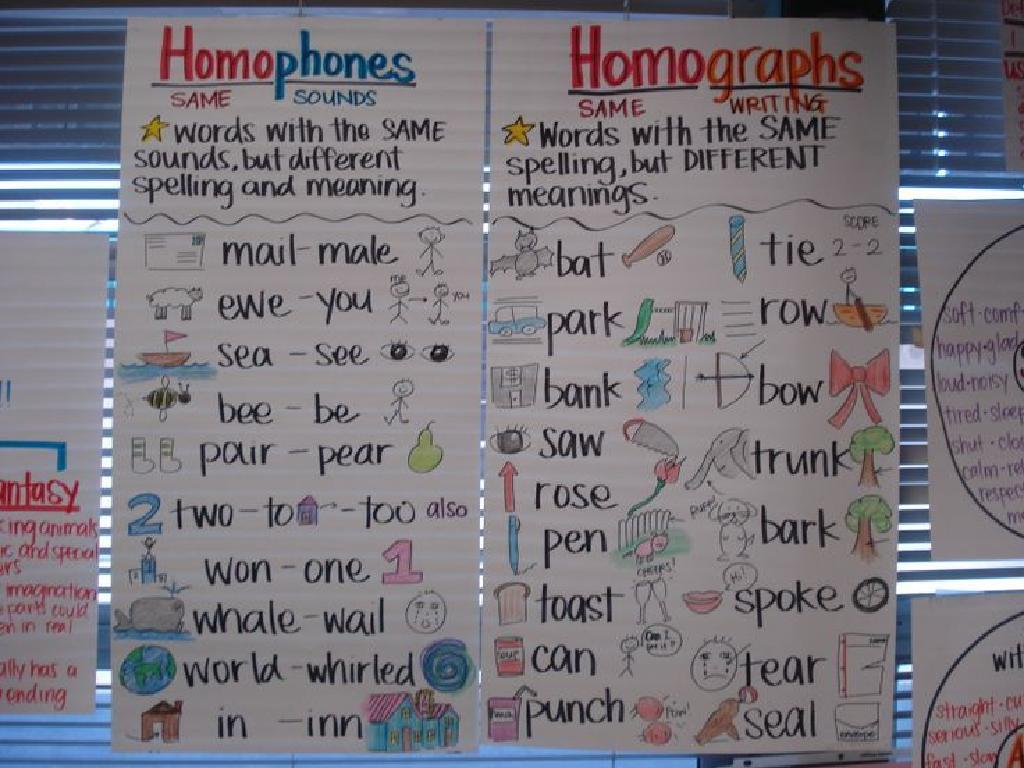 Homophones
SAME SOUNDS
Words with the SAME
sounds, but different
spelling and meaning.
mail-male
ewe-you
me
YOU
sea-see
bee-be
pair-pear
2 two-to -too also
won-one 1
whale-wail
world-whirled
in -inn
Homographs
SAME WRITING
Words with the SAME
spelling, but DIFFERENT
meanings.
bat
park
bank
saw
rose
pen
toast
can
punch
SCORE
tie 2-2
row
bow
trunk
bark
Hi!
spoke
tear
seal
antasy
animals
and special
imagination
parts could
in real
ally has a
ending
soft-comf
happy-glad
loud-noisy
tired-sleep
shut-clo
calm-rel
respec
wit
straight-cu
serious-silly
fast-slow